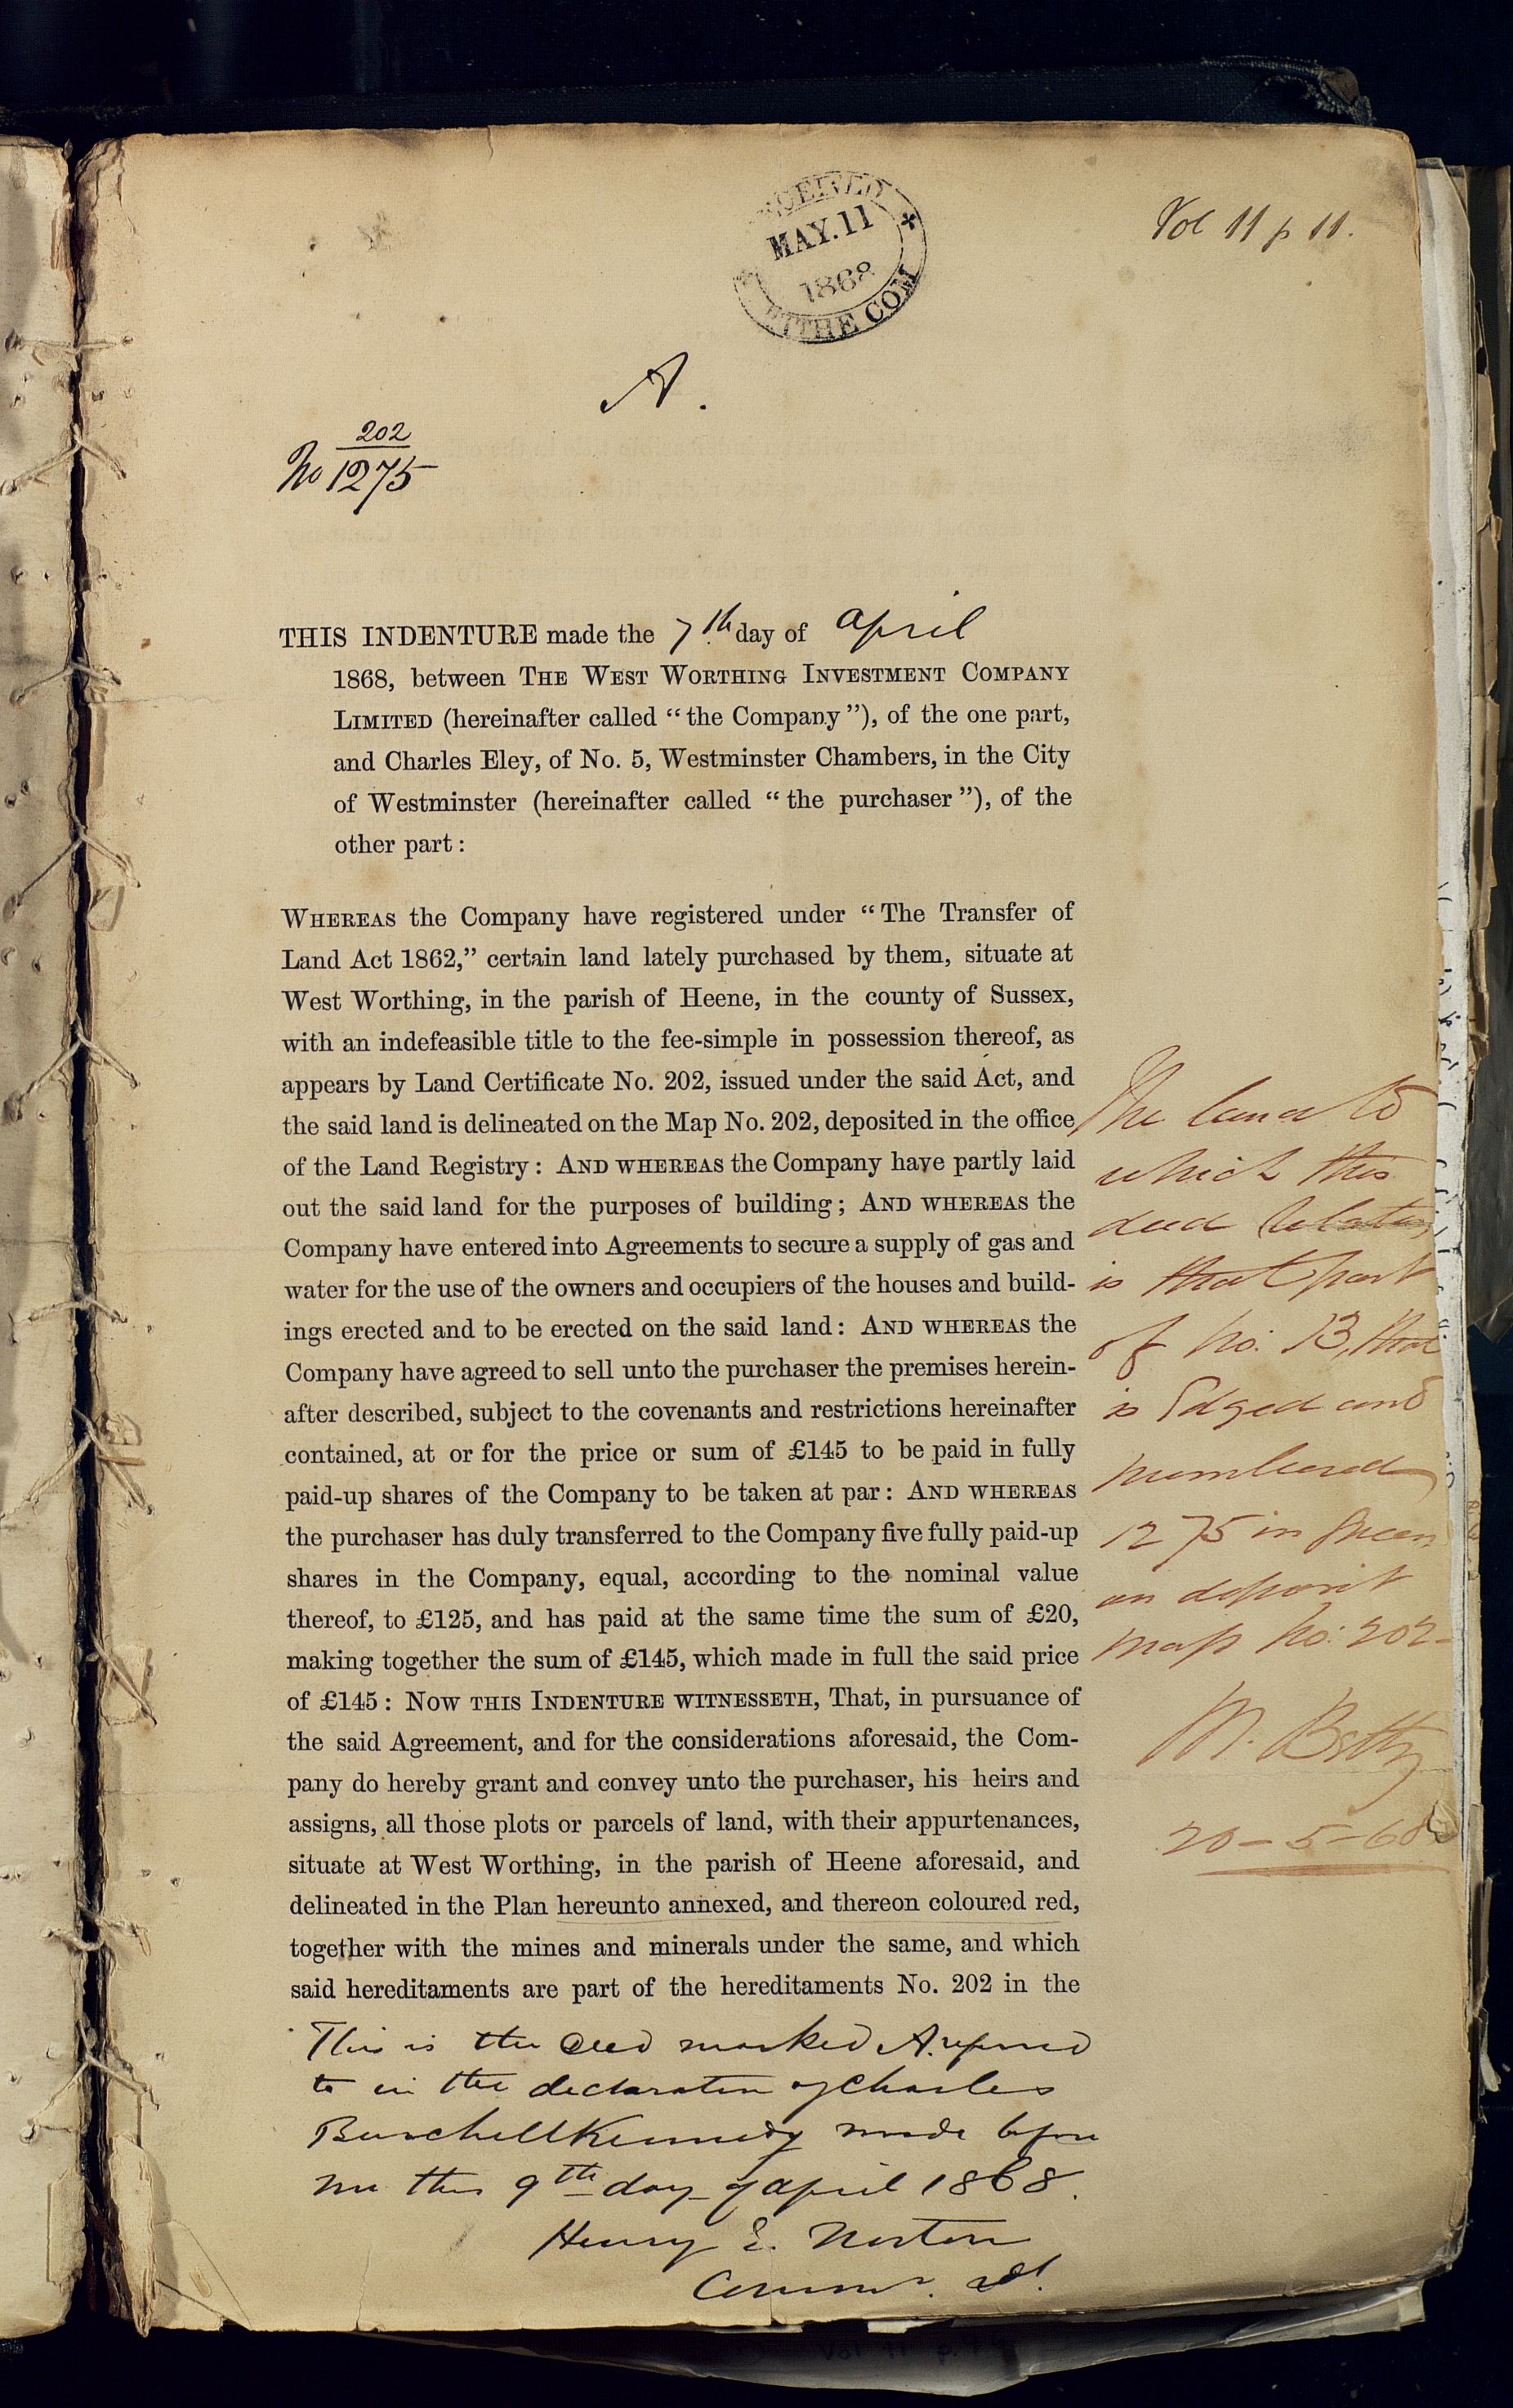 MAY. 11
1868
TITHE COM
Vol 11 p 11.
A.
202
No 1275
THIS INDENTURE made the 7th day of April
1868, between THE WEST WORTHING INVESTMENT COMPANY
LIMITED (hereinafter called “the Company”), of the one part,
and Charles Eley, of No. 5, Westminster Chambers, in the City
of Westminster (hereinafter called “the purchaser”), of the
other part:
WHEREAS the Company have registered under “The Transfer of
Land Act 1862,” certain land lately purchased by them, situate at
West Worthing, in the parish of Heene, in the county of Sussex,
with an indefeasible title to the fee-simple in possession thereof, as
appears by Land Certificate No. 202, issued under the said Act, and
the said land is delineated on the Map No. 202, deposited in the office
of the Land Registry: AND WHEREAS the Company have partly laid
out the said land for the purposes of building; AND WHEREAS the
Company have entered into Agreements to secure a supply of gas and
water for the use of the owners and occupiers of the houses and build-
ings erected and to be erected on the said land: AND WHEREAS the
Company have agreed to sell unto the purchaser the premises herein-
after described, subject to the covenants and restrictions hereinafter
contained, at or for the price or sum of £145 to be paid in fully
paid-up shares of the Company to be taken at par: AND WHEREAS
the purchaser has duly transferred to the Company five fully paid-up
shares in the Company, equal, according to the nominal value
thereof, to £125, and has paid at the same time the sum of £20,
making together the sum of £145, which made in full the said price
of £145: NOW THIS INDENTURE WITNESSETH, That, in pursuance of
the said Agreement, and for the considerations aforesaid, the Com-
pany do hereby grant and convey unto the purchaser, his heirs and
assigns, all those plots or parcels of land, with their appurtenances,
situate at West Worthing, in the parish of Heene aforesaid, and
delineated in the Plan hereunto annexed, and thereon coloured red,
together with the mines and minerals under the same, and which
said hereditaments are part of the hereditaments No. 202 in the
The land to
which this
deed relates
is that part
of No. 13, that
is Edged and
numbered
1275 in Green
on deposit
map No. 202-
20-5-68
This is the deed marked A. referred
to in the declaration of Charles
Burchell Kennedy made before
me this 9th day of April 1868.
Henry E. Norton